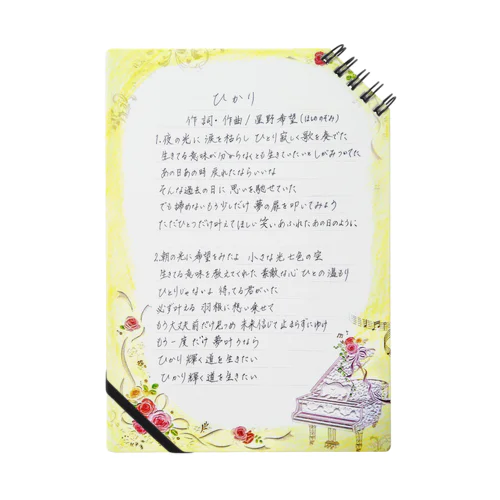 ひかり
作詞・作曲/星野希望(ほしののぞみ)
1.夜の光に 涙を枯らし ひとり寂しく歌を奏でた
生きてる意味が分からなくとも生きていたいとしがみつかてた
あの日あの時 戻れたならいいな
そんな過去の日に 思いを馳せていた
でも諦めないもう少しだけ 夢の扉を叩いてみよう
ただひとつだけ叶えてほしい 笑いあふれたあの日のように
2.朝の光に希望をみたよ 小さな光七色の空
生きてる意味を教えてくれた 素敵な心 ひとの温もり
ひとりじゃないよ 待ってる君がいた
必ず叶える 羽根に想い乗せて
もう大丈夫前だけ見つめ 未来信じて止まらずにゆけ
もう一度だけ 夢叶うなら
ひかり輝く道を生きたい
ひかり輝く道を生きたい